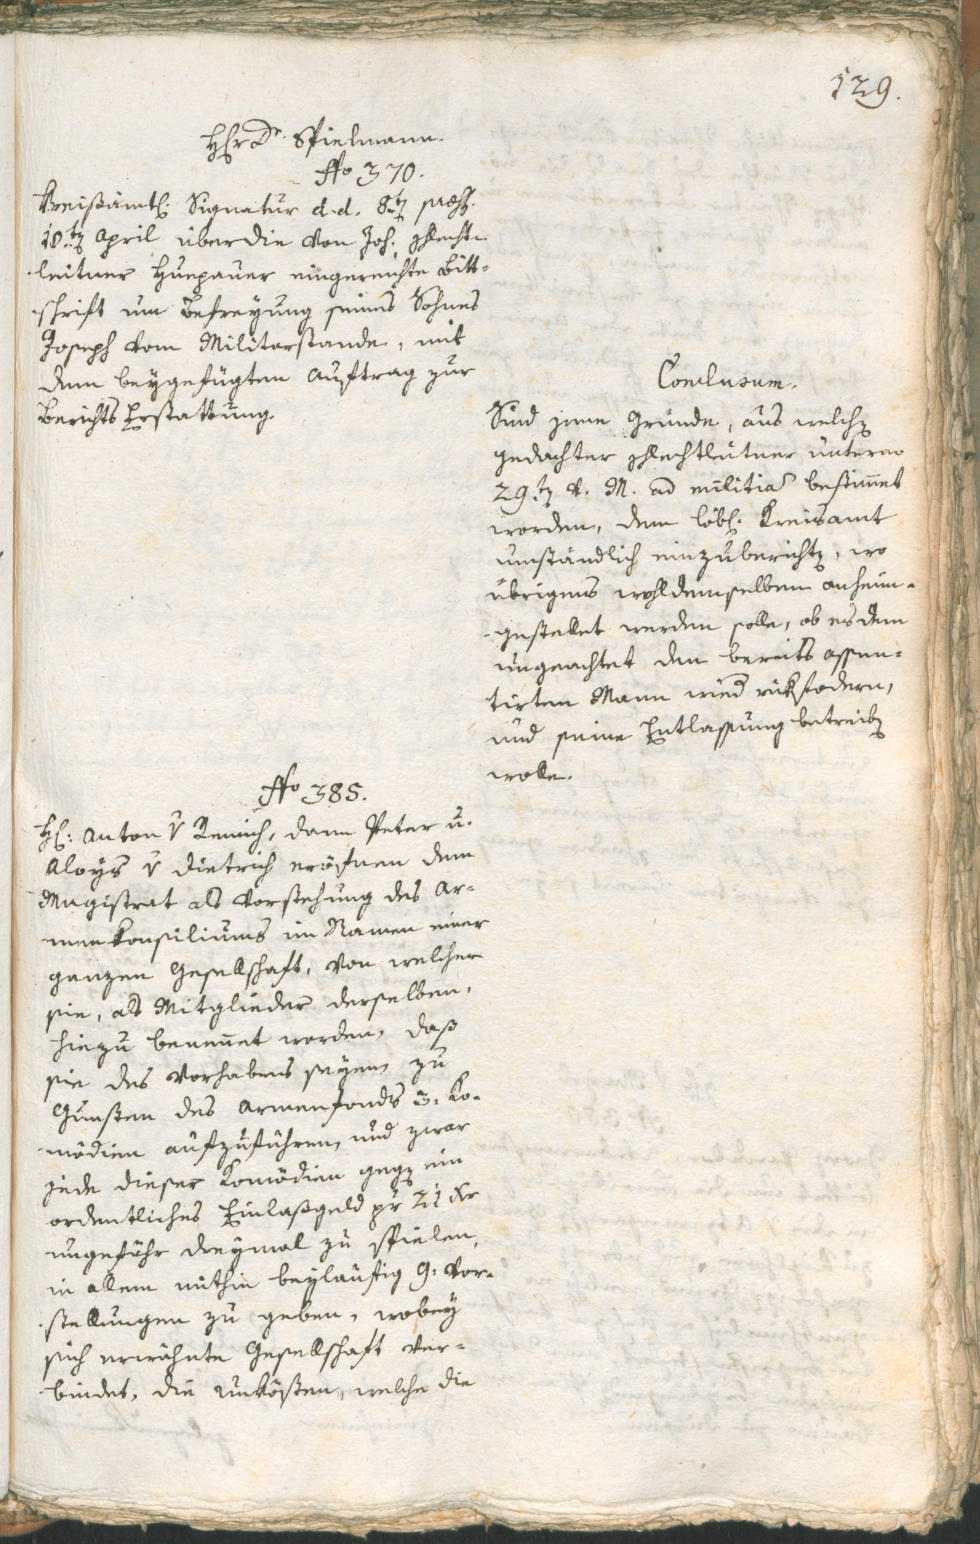 129.
H: Dr. Spielmann.
No 370.
Kreißämtl: Signatur d. d. 8ten praes:
10ten April über die von Joh: Schlecht-
leitner Huepauer eingereichte Bitt-
schrift um Befreyung seines Sohnes
Joseph vom Militarstande, mit
dem beygefügten Auftrag zur
Berichts Erstattung.
Conclusum.
Sind jene Gründe, aus welchen
gedachter Schlechtleitner unterm
29ten v. M. ad militiam bestimmet
worden, dem löbl: Kreisamt
umständlich einzuberichten, wo
übrigens wohldemselben anheim-
gestellet werden solle, ob es dem
ungeachtet den bereits assen-
tirten Mann wied rükfodern,
und seine Entlassung betreiben
wolle.
No 385.
H: Anton v Remich, dann Peter u.
Aloys v Dietrich eröfnen dem
Magistrat als Vorstehung des Ar-
menkonsiliums im Namen einer
ganzen Gesellschaft, von welcher
sie, als Mitglieder derselben,
hiezu benennet worden, daß
sie des Vorhabens seyen, zu
Gunsten des Armenfonds 3. Ko-
mödien aufzuführen, und zwar
jede dieser Komödien gegen ein
ordentliches Einlaßgeld pr 21 Kr
ungefähr dreymal zu spielen,
in allem mithin beyläufig 9. Vor-
stellungen zu geben, wobey
sich erwähnte Gesellschaft ver-
bindet, die Unkösten, welche die